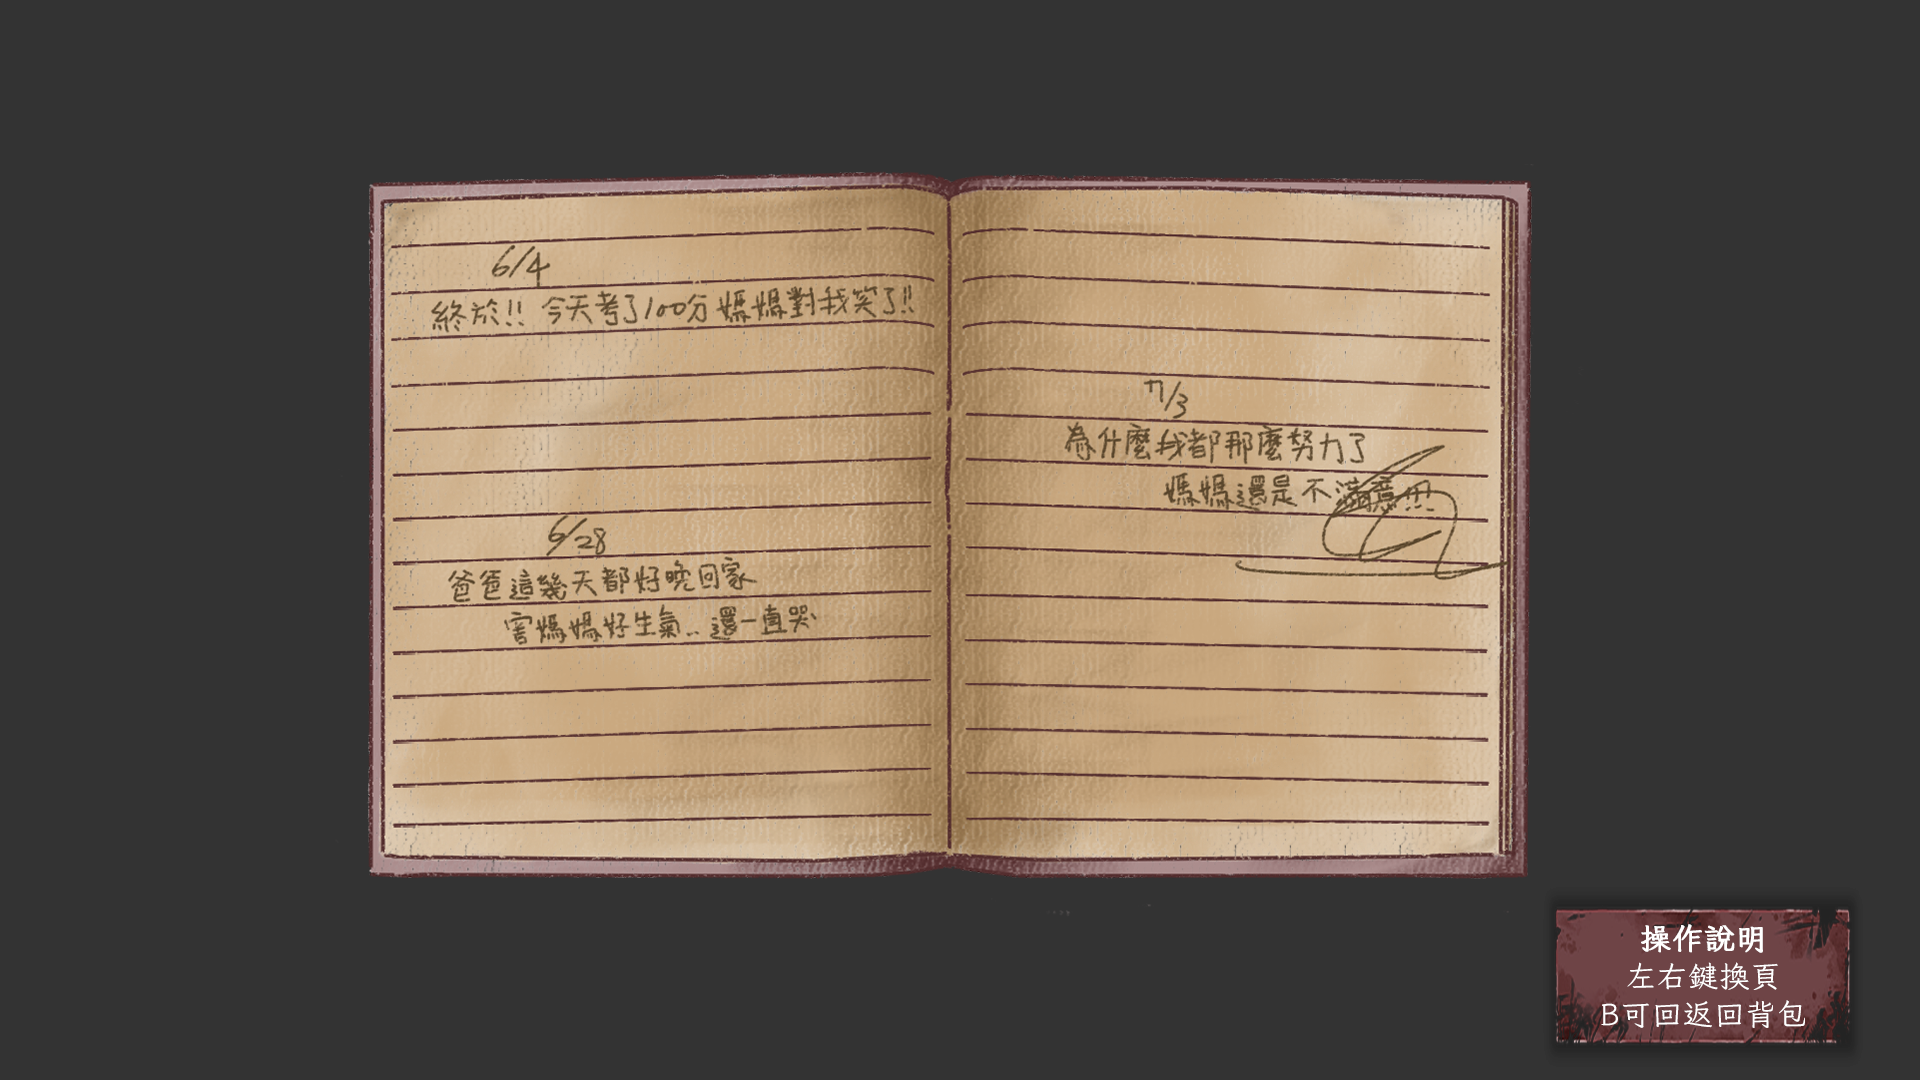 6/4
終於!! 今天考了100分媽媽對我笑了!!
6/28
爸爸這幾天都好晚回家
害媽媽好生氣..還一直哭
7/3
為什麼我都那麼努力了
媽媽還是不滿意!!!
操作說明
左右鍵換頁
B可回返回背包